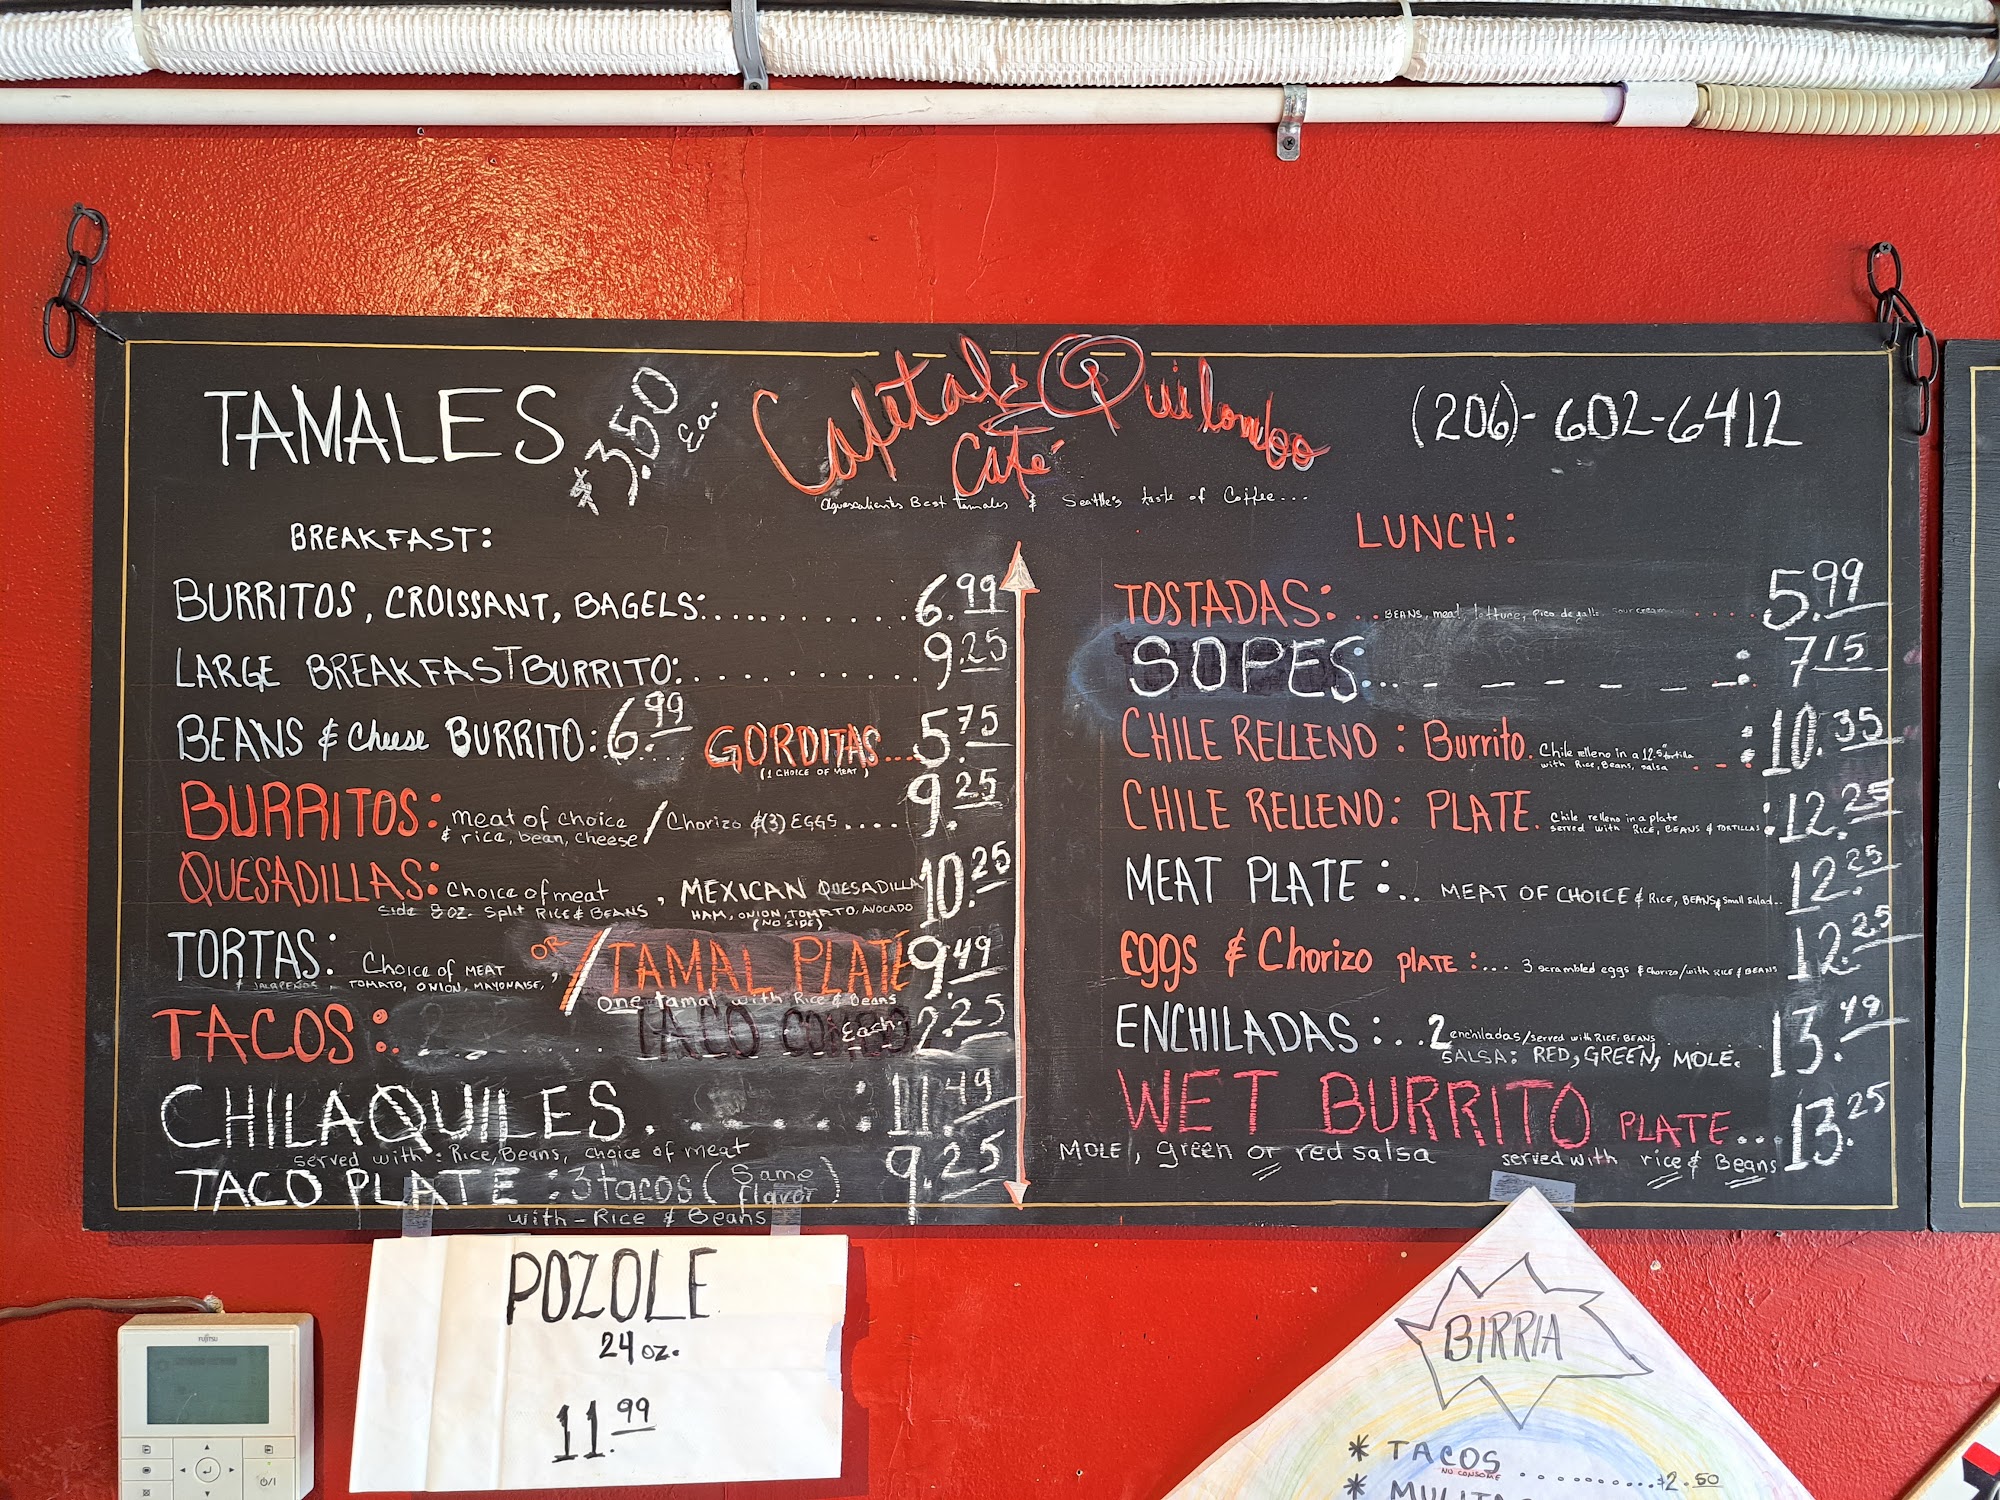 TAMALES $3.50 Ea.
Cafetal Quilombo
Café
(206)-602-6412
Aguascalientes Best tamales & Seattle's taste of Coffee...
BREAKFAST:
BURRITOS, CROISSANT, BAGELS: 6.99
LARGE BREAKFAST BURRITO: 9.25
BEANS & Cheese BURRITO: 6.99 GORDITAS... 5.75
(1 CHOICE OF MEAT)
BURRITOS: meat of choice / Chorizo & (3) EGGS .... 9.25
& rice, bean, cheese
QUESADILLAS: Choice of meat , MEXICAN QUESADILLA 10.25
Side 8 oz. Split RICE & BEANS HAM, ONION, TOMATO, AVOCADO
(NO SIDE)
TORTAS: Choice OF MEAT, OR / TAMAL PLATE 9.49
& JALAPEÑOS, TOMATO, ONION, MAYONAISE, one tamal with Rice & Beans
TACOS: TACO COMBO Each 2.25
CHILAQUILES. 11.49
served with: Rice, Beans, choice of meat
TACO PLATE: 3 tacos (Same flavor) 9.25
with - Rice & Beans
LUNCH:
TOSTADAS: BEANS, meat, lettuce, pico de gallo sour cream 5.99
SOPES: 7.15
CHILE RELLENO: Burrito. Chile relleno in a 12.5" tortilla 10.35
with Rice, Beans, salsa
CHILE RELLENO: PLATE. Chile relleno in a plate 12.25
served with RICE, BEANS & TORTILLAS
MEAT PLATE:.. MEAT OF CHOICE & RICE, BEANS & small salad.. 12.25
Eggs & Chorizo PLATE:... 3 scrambled eggs & chorizo/with RICE & BEANS 12.25
ENCHILADAS:...2 enchiladas/served with RICE, BEANS 13.49
SALSA: RED, GREEN, MOLE.
WET BURRITO PLATE... 13.25
MOLE, green or red salsa served with rice & Beans
POZOLE
24 oz.
11.99
FUJITSU
BIRRIA
* TACOS $2.50
NO CONSOME